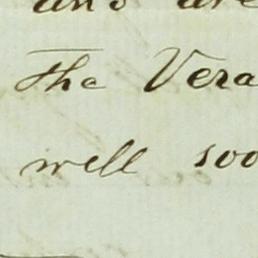 and are
The Vera
well soo